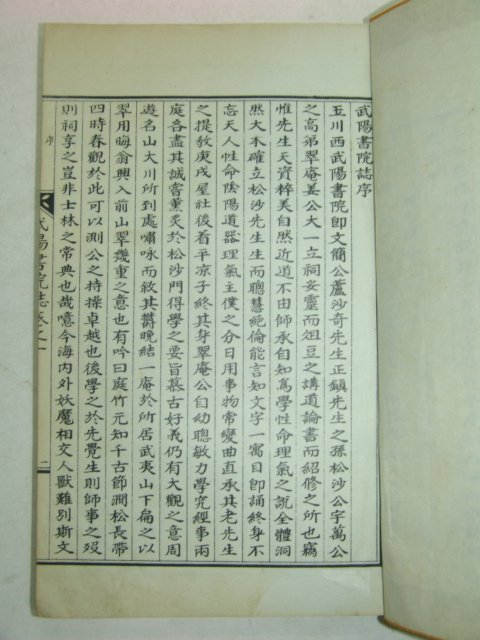 武陽書院誌序
玉川西武陽書院卽文簡公蘆沙奇先生正鎭先生之孫松沙公宇萬公
之高弟翠庵姜公大一立祠妥靈而俎豆之講道論書而紹修之所也竊
惟先生天資粹美自然近道不由師承自知爲學性命理氣之說全體洞
然大本確立松沙先生生而聰慧絶倫能言知文字一寓目卽誦終身不
忘天人性命陰陽道器理氣主僕之分日用事物常變曲直承其老先生
之提敎庚戌屋社後看平凉子終其身翠庵公自幼聰敏力學究經事兩
庭各盡其誠嘗薰炙於松沙門得學之要旨慕古好義仍有大觀之意周
遊名山大川所到處嘯咏而敘其欝晩結一庵於所居武夷山下扁之以
翠用晦翁興入前山翠幾重之意也有吟曰庭竹元知千古節澗松長帶
四時春觀於此可以測公之持操卓越也後學之於先覺生則師事之歿
則祠享之豈非士林之常典也哉噫今海內外妖魔相交人獸難別斯文
序
武陽書院誌卷之一
二